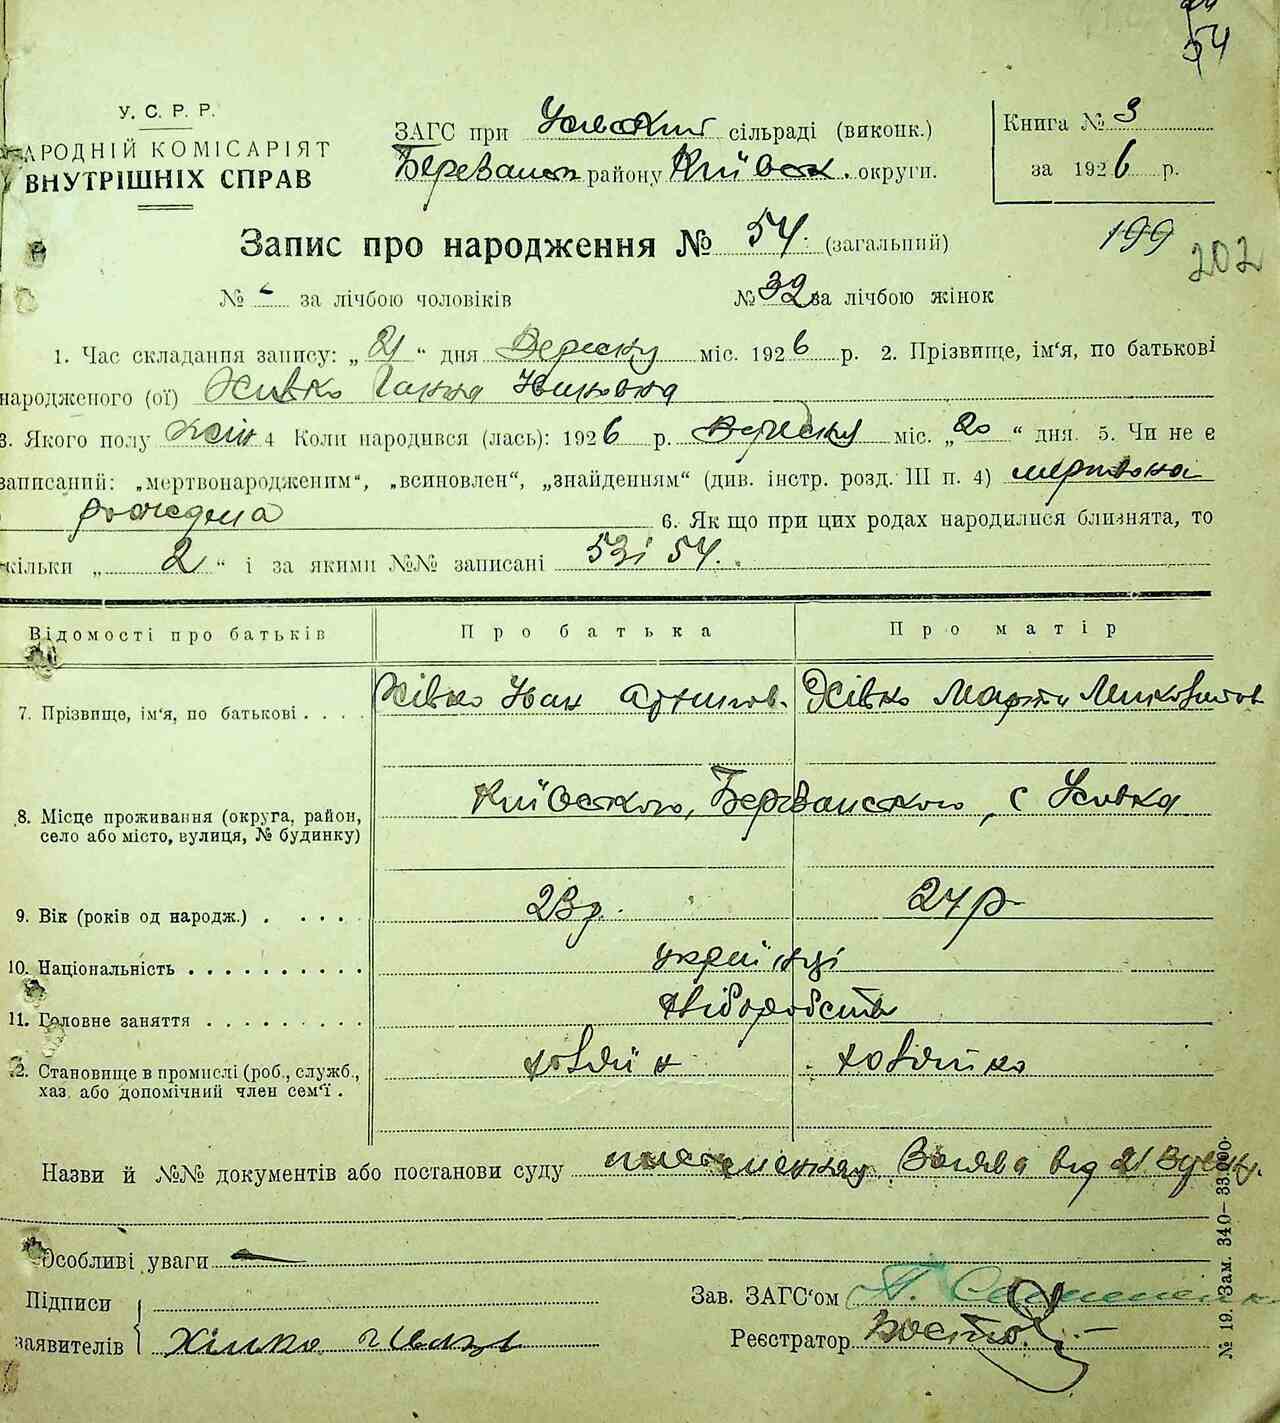 54
У. С. Р. Р.
АРОДНІЙ КОМІСАРІЯТ
ВНУТРІШНІХ СПРАВ
ЗАГС при сільраді (виконк.)
району Київськ. округи.
Книга № 3
за 1926 р.
Запис про народження № 54. (загальний)
199
202
№ - за лічбою чоловіків № 32 за лічбою жінок
1. Час складання запису: „ 21 “ дня Вересня міс. 1926 р. 2. Прізвище, ім‘я, по батькові
народженого (ої) Ганна Ивановна
3. Якого полу жін 4 Коли народився (лась): 1926 р. Вересня міс. „ 20 “ дня. 5. Чи не є
записаний: „мертвонародженим“, „всиновлен“, „знайденням“ (див. інстр. розд. III п. 4) мертвона
рожедена 6. Як що при цих родах народилися близнята, то
кільки „ 2 “ і за якими №№ записані 53 і 54.
Відомості про батьків Про батька Про матір
7. Прізвище, ім‘я, по батькові . . . . Хівко Иван Хівко Марта
8. Місце проживання (округа, район,
село або місто, вулиця, № будинку)
Київского, с Усівка
9. Вік (років од народж.) . . . . . 23 р. 24 р
10. Національність . . . . . . . . . . українці
11. Головне заняття . . . . . . . . . хліборобств
2. Становище в промислі (роб., служб.,
хаз. або допомічний член сем‘ї .
хозяїн хозяйка
Назви й №№ документів або постанови суду Заява від 21
Особливі уваги —
Підписи
заявителів
Зав. ЗАГС‘ом
Реєстратор
№ 19. Зам. 340–33.000.